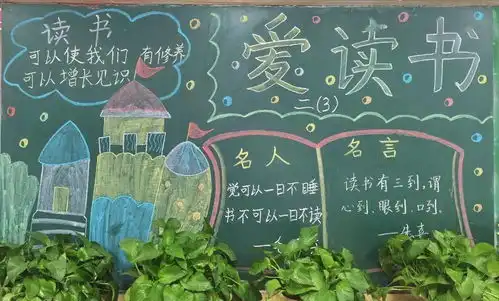 读书
可以使我们 有修养
可以增长见识
爱读书
二(3)
名人
觉可以一日不睡
书不可以一日不读
名言
读书有三到，谓
心到、眼到、口到。
——朱熹